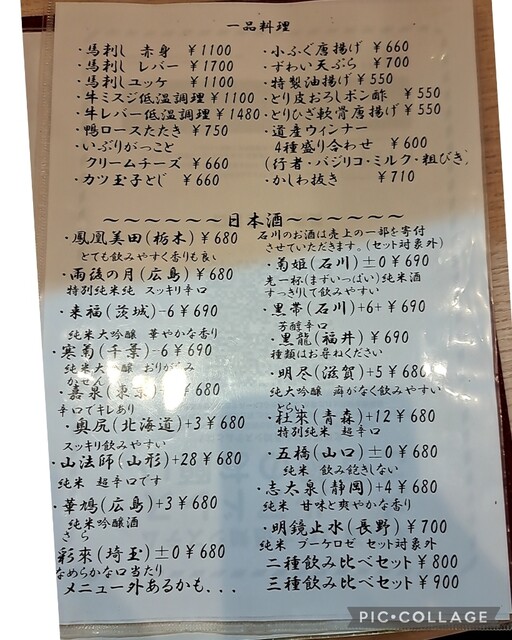 一品料理
・馬刺し 赤身 ¥1100
・馬刺し レバー ¥1700
・馬刺し ユッケ ¥1100
・牛ミスジ低温調理 ¥1100
・牛レバー低温調理 ¥1480
・鴨ロースたたき ¥750
・いぶりがっこと
クリームチーズ ¥660
・カツ玉子とじ ¥660
・小ふぐ唐揚げ ¥660
・ずわい天ぷら ¥700
・特製油揚げ ¥550
・とり皮おろしポン酢 ¥550
・とりひざ軟骨唐揚げ ¥550
・道産ウィンナー
4種盛り合わせ ¥600
(行者・バジリコ・ミルク・粗びき)
・かしわ抜き ¥710
~~~~~~日本酒~~~~~~
・鳳凰美田(栃木) ¥680
とても飲みやすく香りも良い
・雨後の月(広島) ¥680
特別純米純 スッキリ辛口
・来福(茨城)-6 ¥690
純米大吟醸 華やかな香り
・寒菊(千葉)-6 ¥690
純米大吟醸 おりがらみ
かせん
・嘉泉(東京) ¥680
辛口でキレあり
・奥尻(北海道)+3 ¥680
スッキリ飲みやすい
・山法師(山形)+28 ¥680
純米 超辛口です
・華鳩(広島)+3 ¥680
純米吟醸酒
さら
彩來(埼玉)±0 ¥680
なめらかな口当たり
メニュー外あるかも...
石川のお酒は売上の一部を寄付
させていただきます。(セット対象外)
・菊姫(石川)±0 ¥690
先一杯(まずいっぱい)純米酒
すっきりして飲みやすい
・黒帯(石川)+6 ¥690
芳醇辛口
・黒龍(福井) ¥690
種類はお尋ねください
・明尽(滋賀)+5 ¥680
純大吟醸 癖がなく飲みやすい
とらい
・杜來(青森)+12 ¥680
特別純米 超辛口
・五橋(山口)±0 ¥680
純米 飲み飽きない
・志太泉(静岡)+4 ¥680
純米 甘味と爽やかな香り
・明鏡止水(長野) ¥700
純米 ブーケロゼ セット対象外
二種飲み比べセット ¥800
三種飲み比べセット ¥900
PIC•COLLAGE